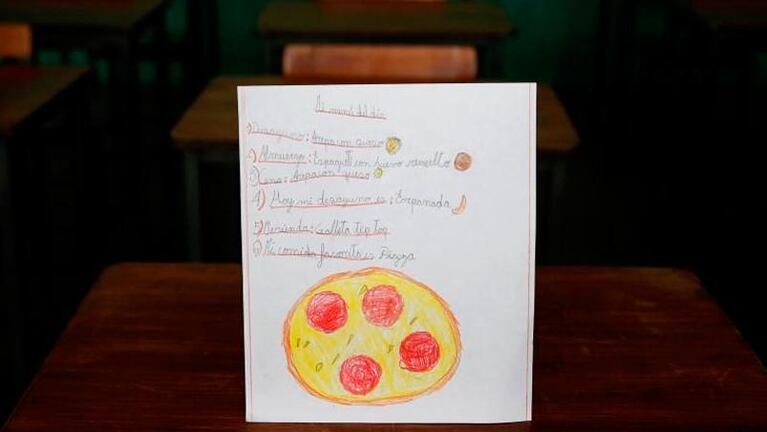 Mi menú del día
1) Desayuno: Arepa con queso
2) Almuerzo: Espagueti con huevo
3) Cena: Arepa con queso
4) Hoy mi desayuno es: Empanada
5) Merienda: Galleta tip top
6) Mi comida favorita es Pizza